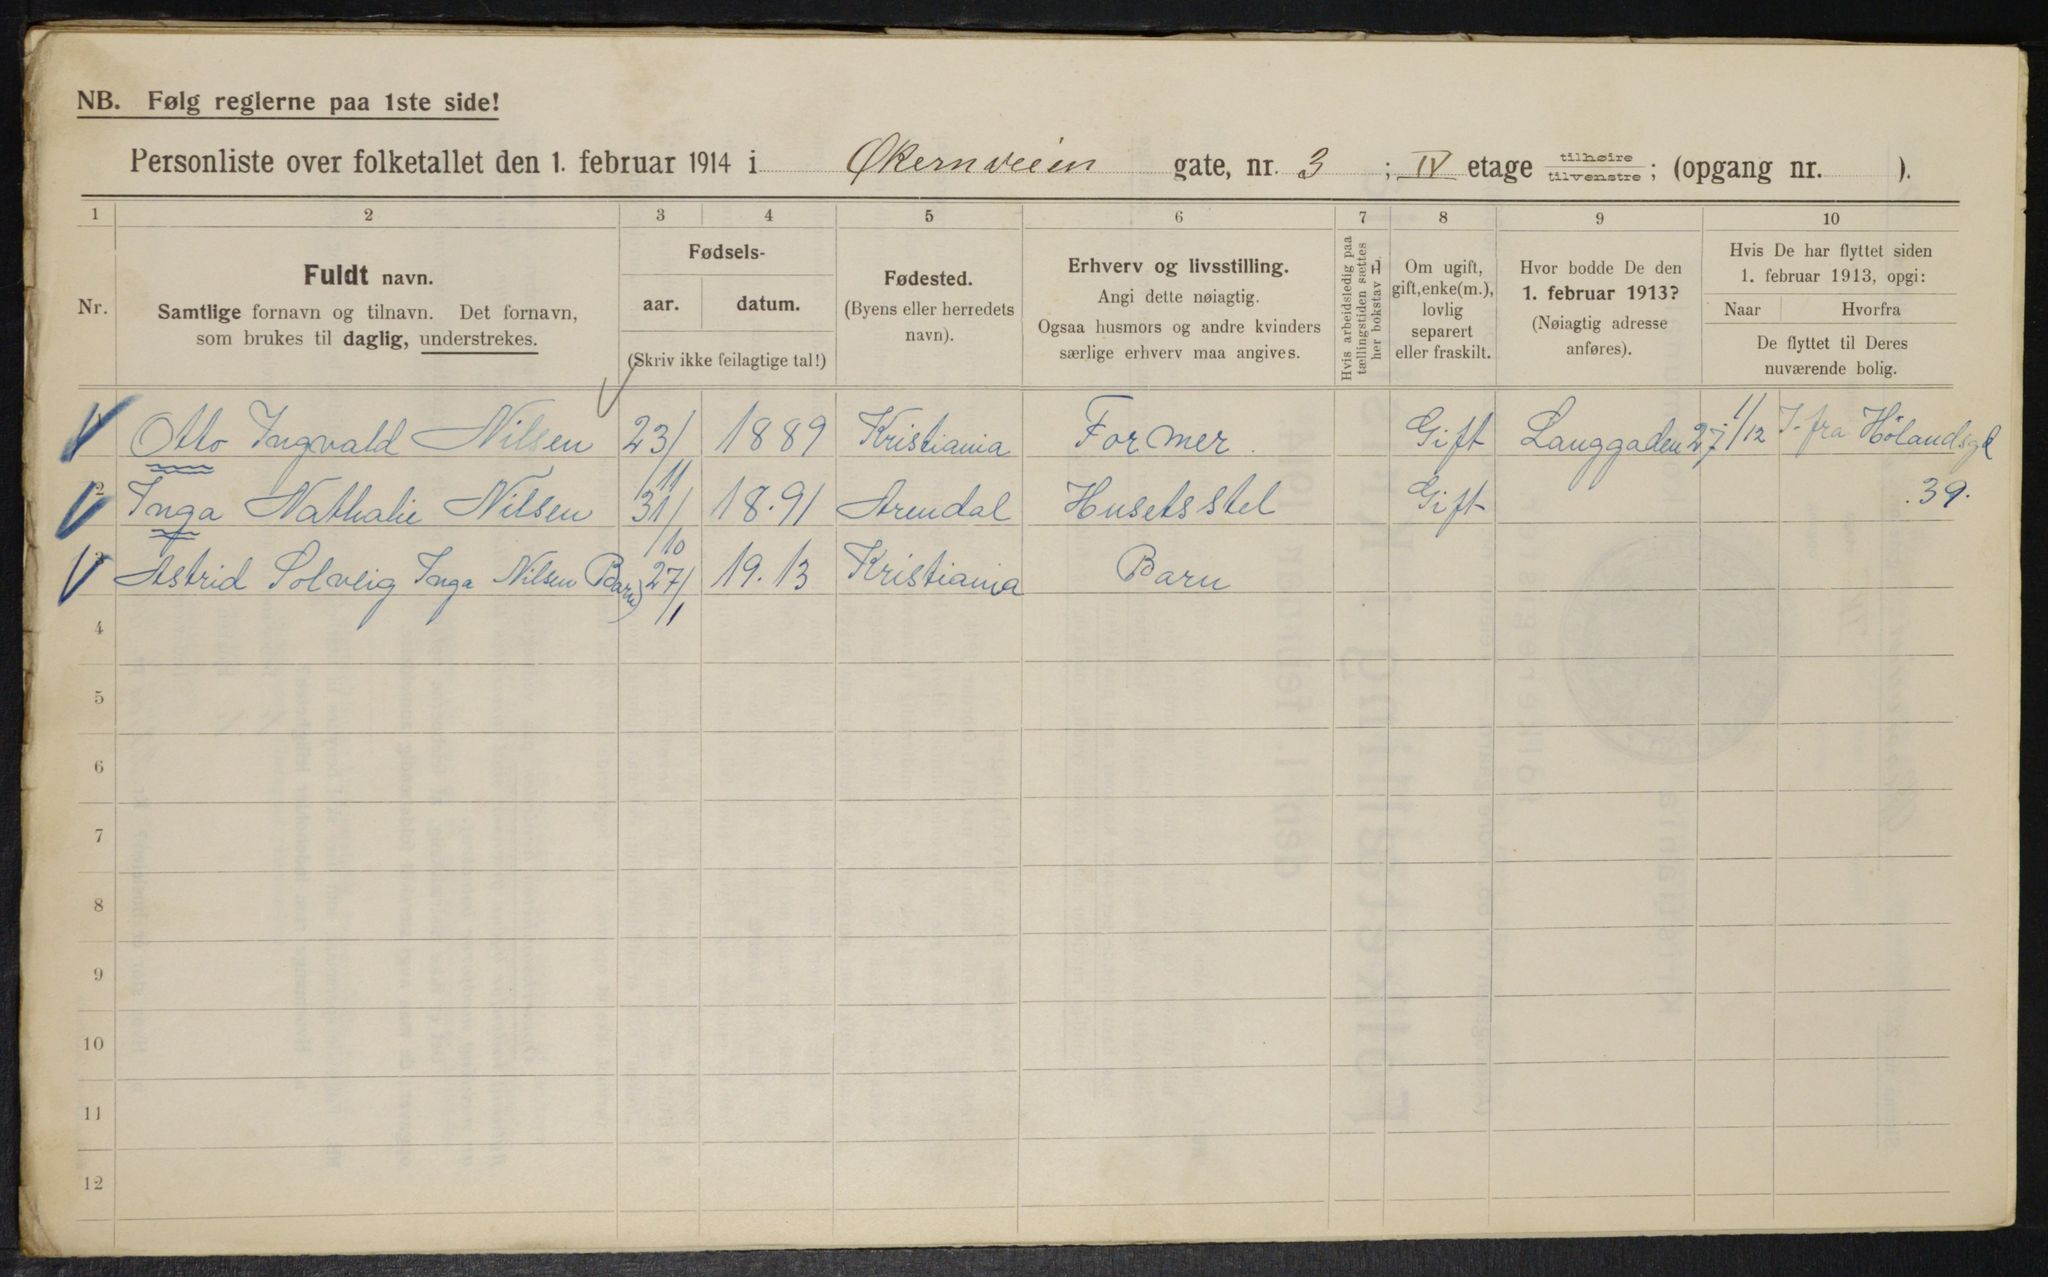 NB. Følg reglerne paa 1ste side!
Personliste over folketallet den 1. februar 1914 i Økernveien gate, nr. 3 ; IV etage tilhøire tilvenstre ; (opgang nr. ).
1 2 3 4 5 6 7 8 9 10
Nr.
Fuldt navn.
Samtlige fornavn og tilnavn. Det fornavn,
som brukes til daglig, understrekes.
Fødsels-
aar. datum.
(Skriv ikke feilagtige tal!)
Fødested.
(Byens eller herredets
navn).
Erhverv og livsstilling.
Angi dette nøiagtig.
Ogsaa husmors og andre kvinders
særlige erhverv maa angives.
Hvis arbeidsledig paa
tællingstiden sættes
her bokstav L.
Om ugift,
gift, enke(m.),
lovlig
separert
eller fraskilt.
Hvor bodde De den
1. februar 1913?
(Nøiagtig adresse
anføres).
Hvis De har flyttet siden
1. februar 1913, opgi:
Naar Hvorfra
De flyttet til Deres
nuværende bolig.
Otto Ingvald Nilsen 23/11 1889 Kristiania Former. Gift Langgaden 27 1/12 fra Hølandsgt
2 Inga Nathalie Nilsen 31/10 18.91 Arendal Husets stel Gift .39.
3 Astrid Solveig Inga Nilsen Barn) 27/1 19.13 Kristiania Barn
4
5
6
7
8
9
10
11
12